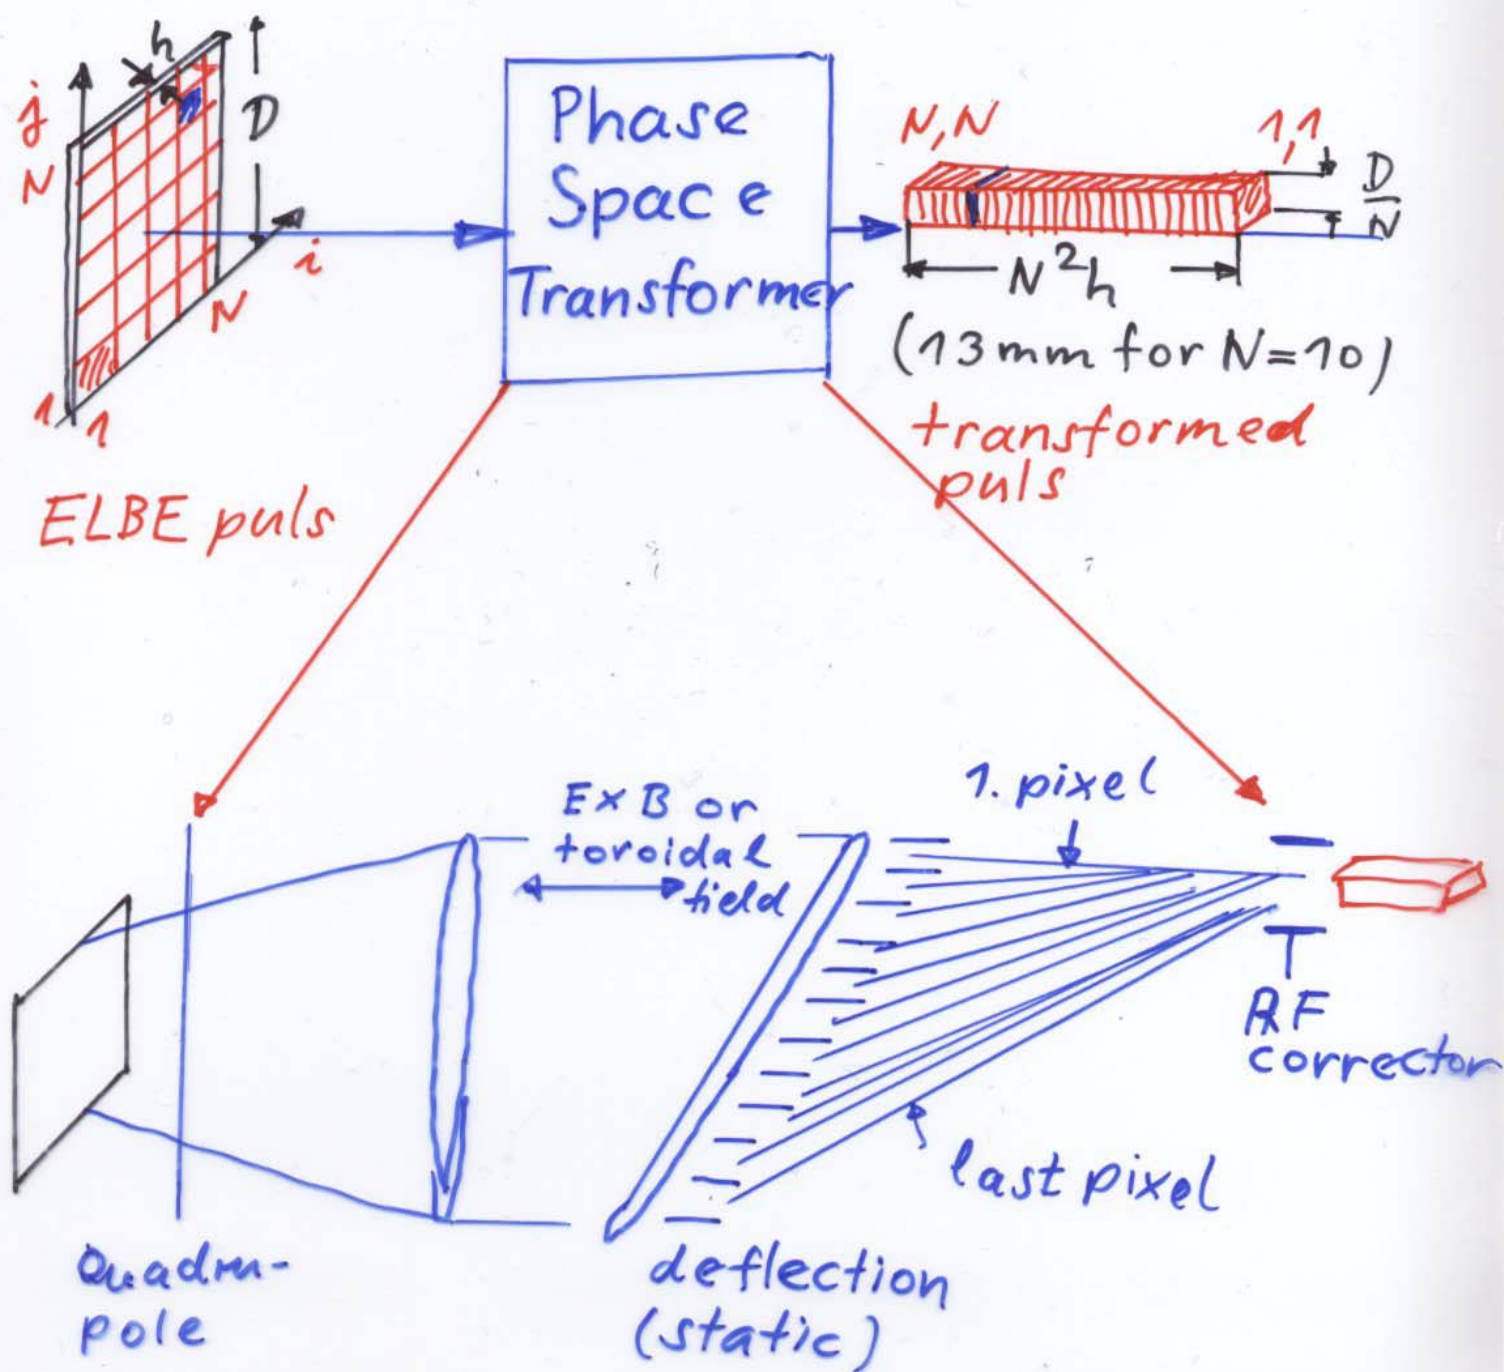 h
j
N
D
i
N
1
1
ELBE puls
Phase
Space
Transformer
N,N
1,1
D
N
N²h
(13mm for N=10)
transformed
puls
E×B or
toroidal
field
1. pixel
RF
corrector
last pixel
Quadru-
pole
deflection
(static)